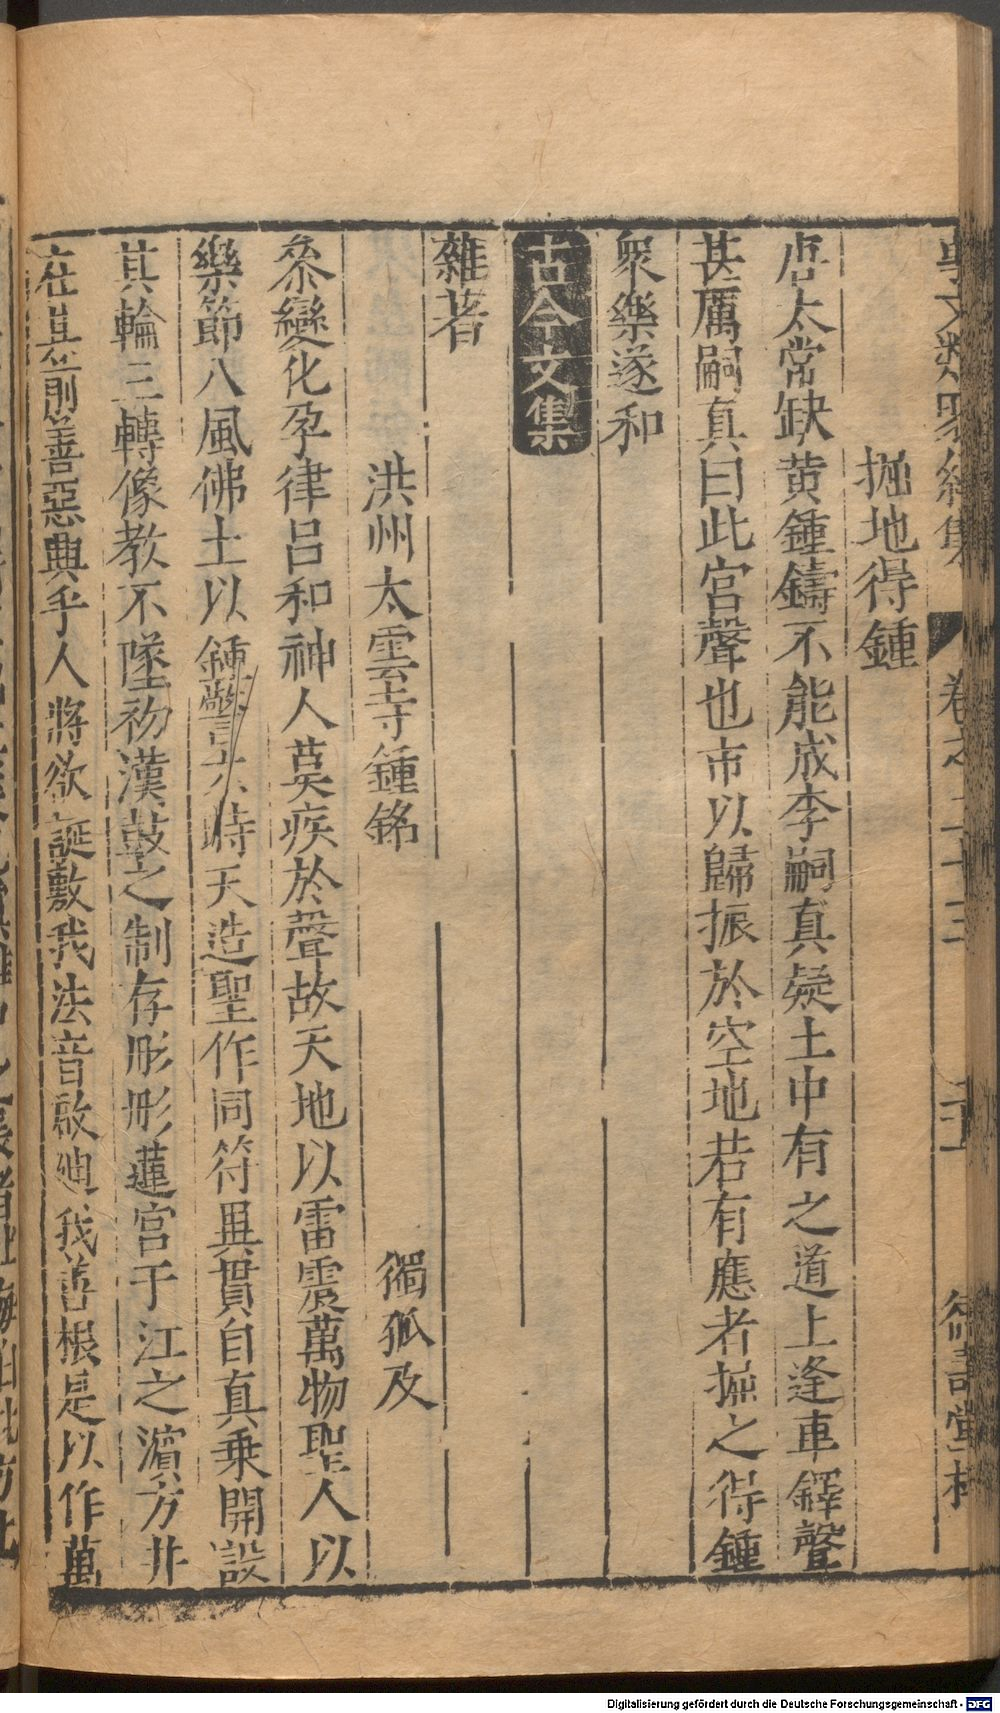 事文類聚續集 卷之二十三 德壽堂梓
掘地得鍾
唐太常缺黃鍾鑄不能成李嗣真疑土中有之道上逢車鐸聲
甚厲嗣真曰此宮聲也市以歸振於空地若有應者掘之得鍾
眾樂遂和
古今文集
雜著
洪州太雲寺鍾銘 獨孤及
叅變化孕律呂和神人莫疾於聲故天地以雷震萬物聖人以
樂節八風佛土以鍾警六時天造聖作同符異貫自真乗開設
其輪三轉像教不墜初漢鼓之制存形形蓮宮于江之濵方井
在豈前善惡典乎人將欲誕敷我法音啟迪我善根是以作萬
Digitalisierung gefördert durch die Deutsche Forschungsgemeinschaft - DFG